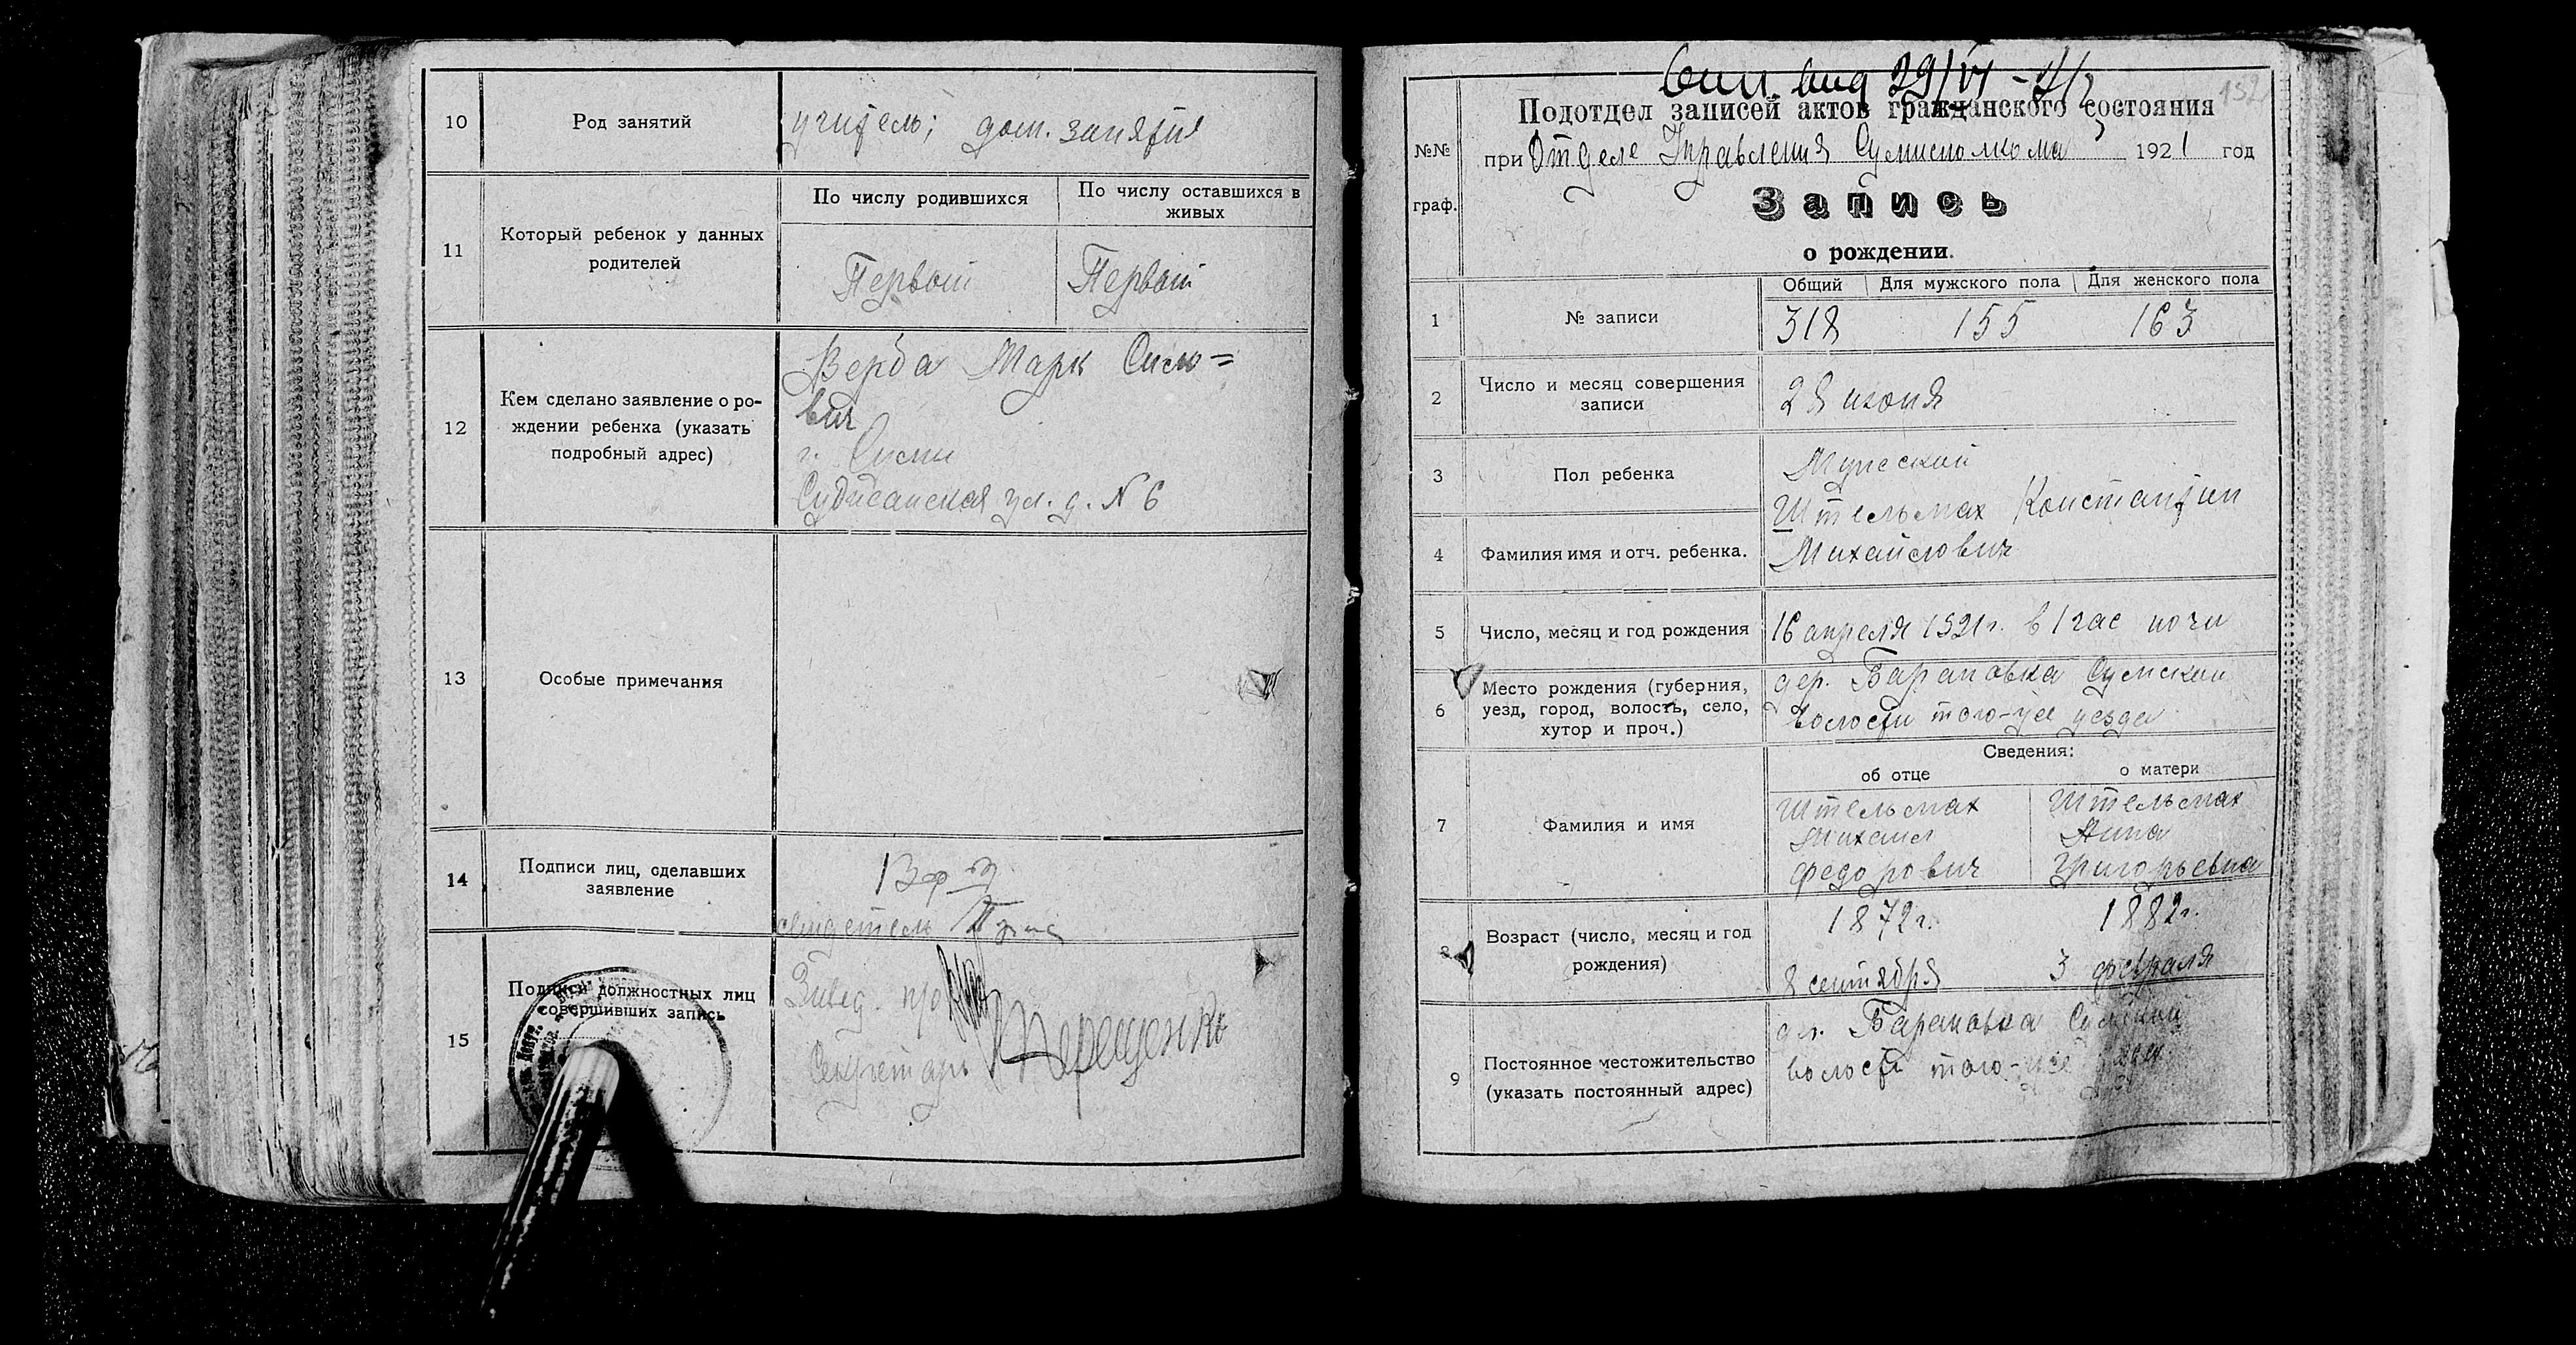 10
Род занятий
учитель; дом. занятия
11
Который ребенок у данных
родителей
По числу родившихся
По числу оставшихся в
живых
Первый
Первый
12
Кем сделано заявление о ро-
ждении ребенка (указать
подробный адрес)
Верба Марк Сило=
вич
г. Сумы
ул. д. № 6
13
Особые примечания
14
Подписи лиц, сделавших
заявление
свидетель
15
Подписи должностных лиц
совершивших запись
Завед.
Секретарь Терещенко
вид 29/VI
152
№№
граф.
Подотдел записей актов гражданского состояния
при Отделе Управления Сумисполкома 1921 год
Запись
о рождении.
Общий Для мужского пола Для женского пола
1
№ записи
318 155 163
2
Число и месяц совершения
записи
28 июня
3
Пол ребенка
Мужской
4
Фамилия имя и отч. ребенка.
Штельмах Константин
Михайлович
5
Число, месяц и год рождения
16 апреля 1921 г. в 1 час ночи
6
Место рождения (губерния,
уезд, город, волость, село,
хутор и проч.)
дер. Барановка Сумской
волости того-же уезда
Сведения:
об отце
о матери
7
Фамилия и имя
Штельмах
Михаил
Федорович
Штельмах
Анна
Григорьевна
8
Возраст (число, месяц и год
рождения)
1872 г.
8 сентября
1882 г.
3 февраля
9
Постоянное местожительство
(указать постоянный адрес)
Барановка Сумской
волости того-же